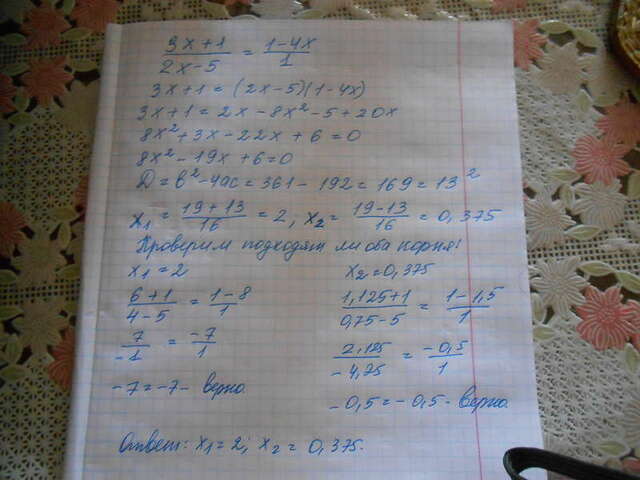 (3x+1)/(2x-5) = (1-4x)/1
3x+1=(2x-5)(1-4x)
3x+1=2x-8x²-5+20x
8x²+3x-22x+6=0
8x²-19x+6=0
D=b²-4ac=361-192=169=13²
x₁=(19+13)/16=2; x₂=(19-13)/16=0,375
Проверим подходят ли оба корня!
x₁=2 x₂=0,375
(6+1)/(4-5)=(1-8)/1 (1,125+1)/(0,75-5)=(1-1,5)/1
7/-1=-7/1 2,125/-4,25=-0,5/1
-7=-7- верно. -0,5=-0,5- верно.
Ответ: x₁=2; x₂=0,375.